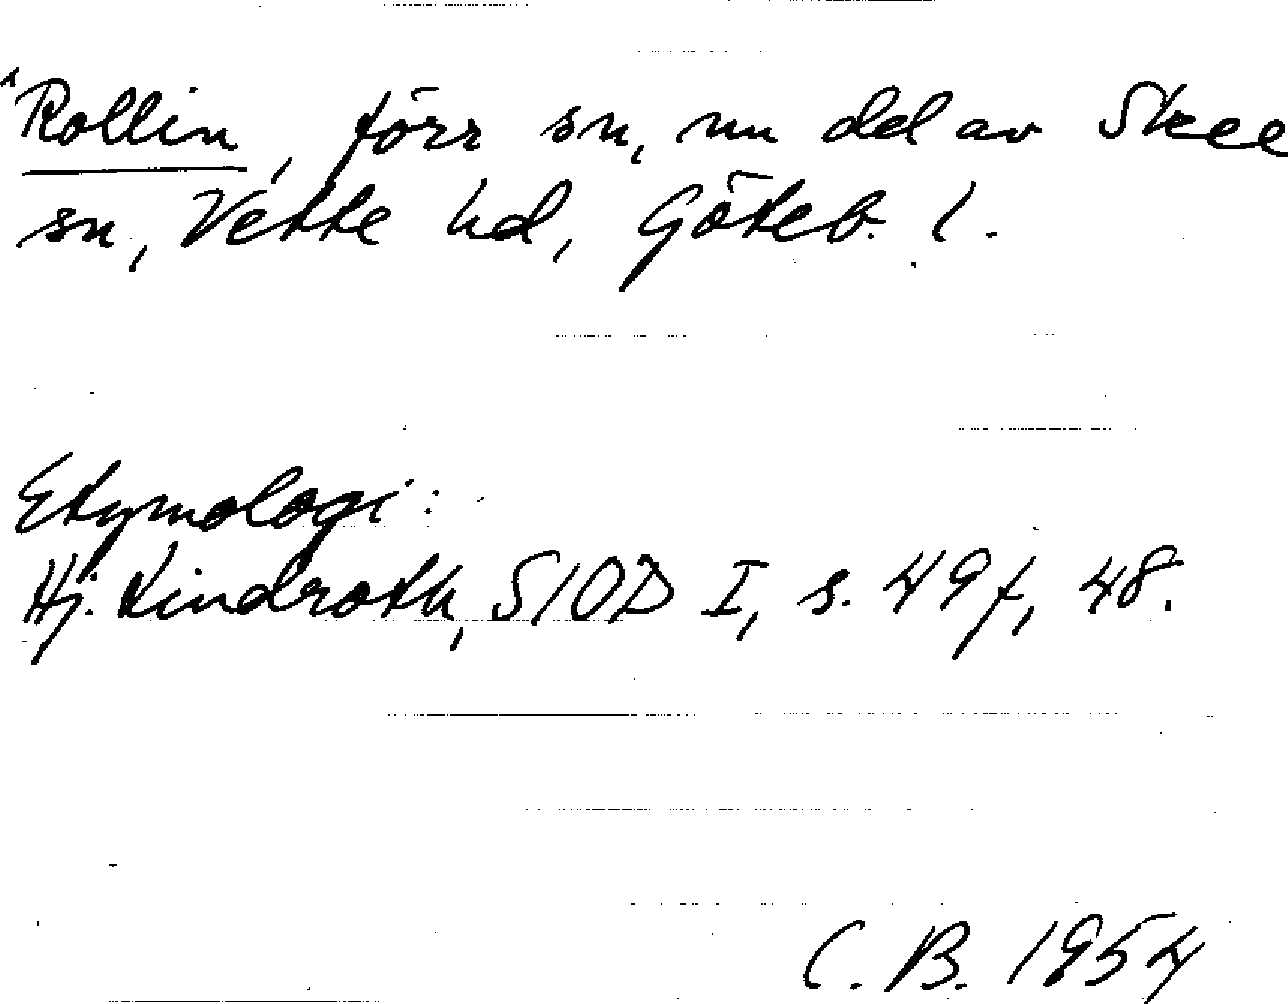 ^Rollin, förr sn, nu del av Skee
sn, Vette hd, Göteb. l.
Etymologi:
Hj. Lindroth, SIOD I, s. 49 f, 48.
C. B. 1954